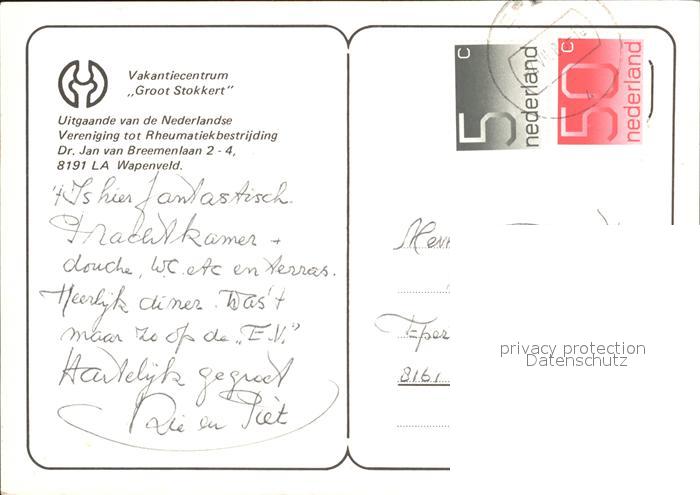 Vakantiecentrum
„Groot Stokkert"
Uitgaande van de Nederlandse
Vereniging tot Rheumatiekbestrijding
Dr. Jan van Breemenlaan 2 - 4,
8191 LA Wapenveld.
't Is hier fantastisch.
Prachtkamer +
douche, W.C. etc en terras.
Heerlijk diner. Was 't
maar zo op de „E.V."
Hartelijk gegroet
Rie en Piet
5 c nederland
50 c nederland
Eper
8161
privacy protection
Datenschutz